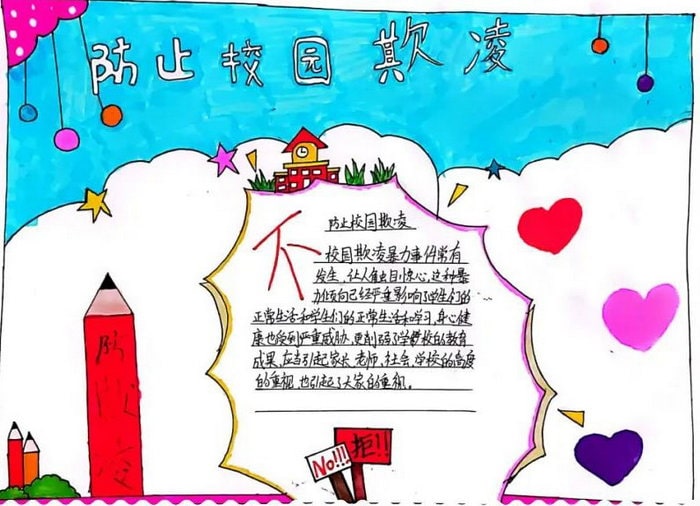 防止校园欺凌
不
防止校园欺凌
校园欺凌暴力事件常有
发生,让人触目惊心,这种暴
力倾向已经严重影响了学生们的
正常生活和学生们的正常生活和学习,身心健
康也受到严重威胁.更削弱了学校的教育
成果,应当引起家长,老师,社会,学校的高度
的重视,也引起了大家的重视。
防
No!!! 拒!!